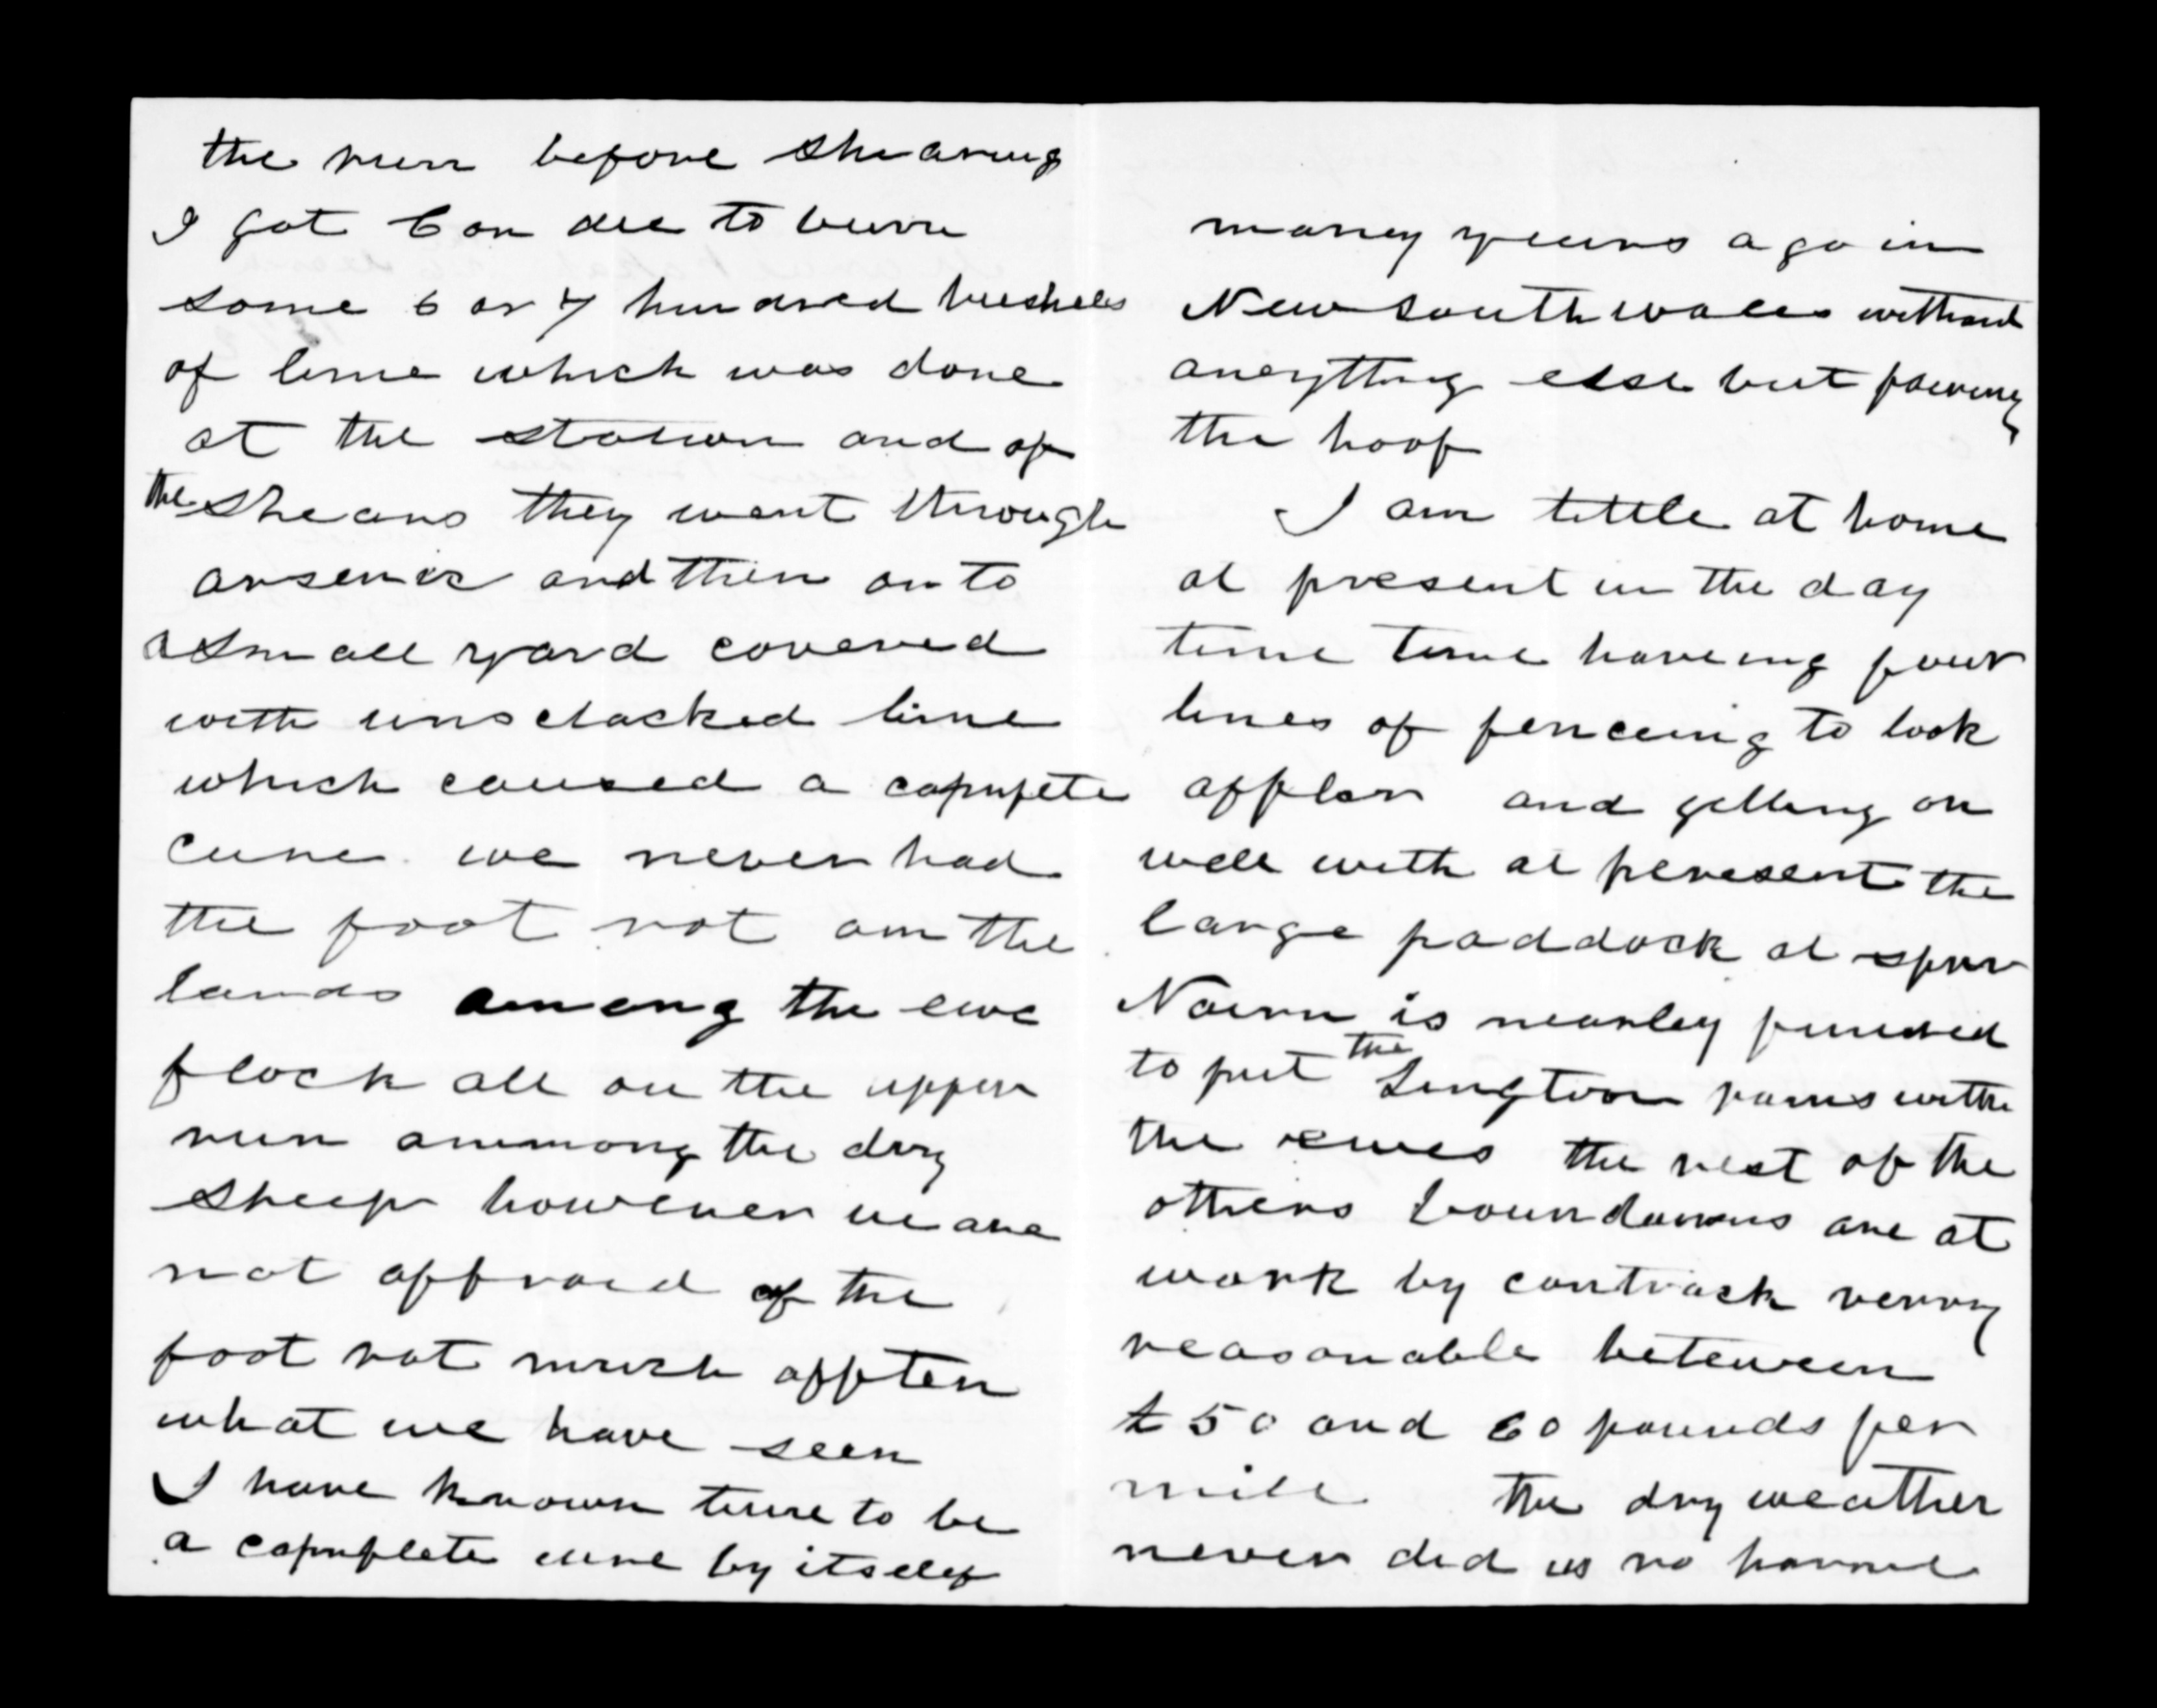 the run before Shearing
I got Con dee to burn
some 6 or 7 hundred bushels
of lime which was done
at the station and of
the Shears they went through
arsenic and then on to
a Small yard covered
with unsclacked lime
which caused a capmpete
cure. we never had
the foot rot on the
lands among the ewe
flock all on the upper
run ammong the dry
Sheep however we are
not affraid of the
foot rot much affter
what we have seen
I have known lime to be
a capmplete cure by itself
maney years ago in
New South wales without
aneything else but paireing
the hoof
I am little at home
at present in the day
time time haveing four
lines of fenceing to look
affter and getting on
well with at peresent the
large paddock at spur
Nairn is nearley finished
to put the Lington rams with
the ewes the rest of the
others boundarys are at
work by contrack verry
reasonable beteween
£50 and 60 pounds per
mile the dry weather
never did us no harme